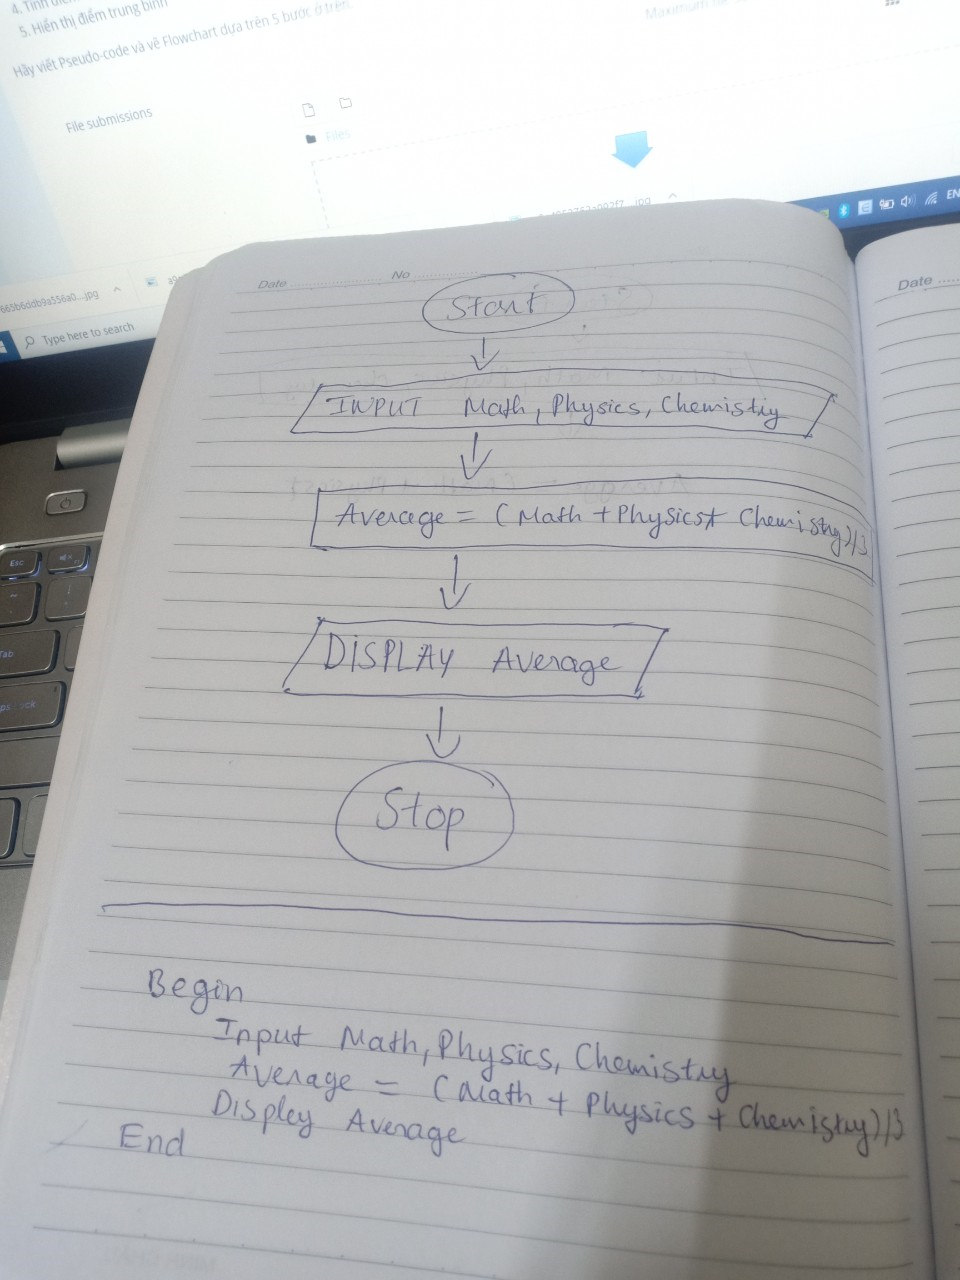 5. Hiển thị điểm trung bình
Hãy viết Pseudo-code và vẽ Flowchart dựa trên 5 bước ở trên.
Maximum
File submissions
Files
Type here to search
EN
Date
No
Date
Start
INPUT Math, Physics, Chemistry
Average = (Math + Physics + Chemistry)/3
DISPLAY Average
Stop
Begin
Input Math, Physics, Chemistry
Average = (Math + Physics + Chemistry)/3
Displey Average
End
Esc